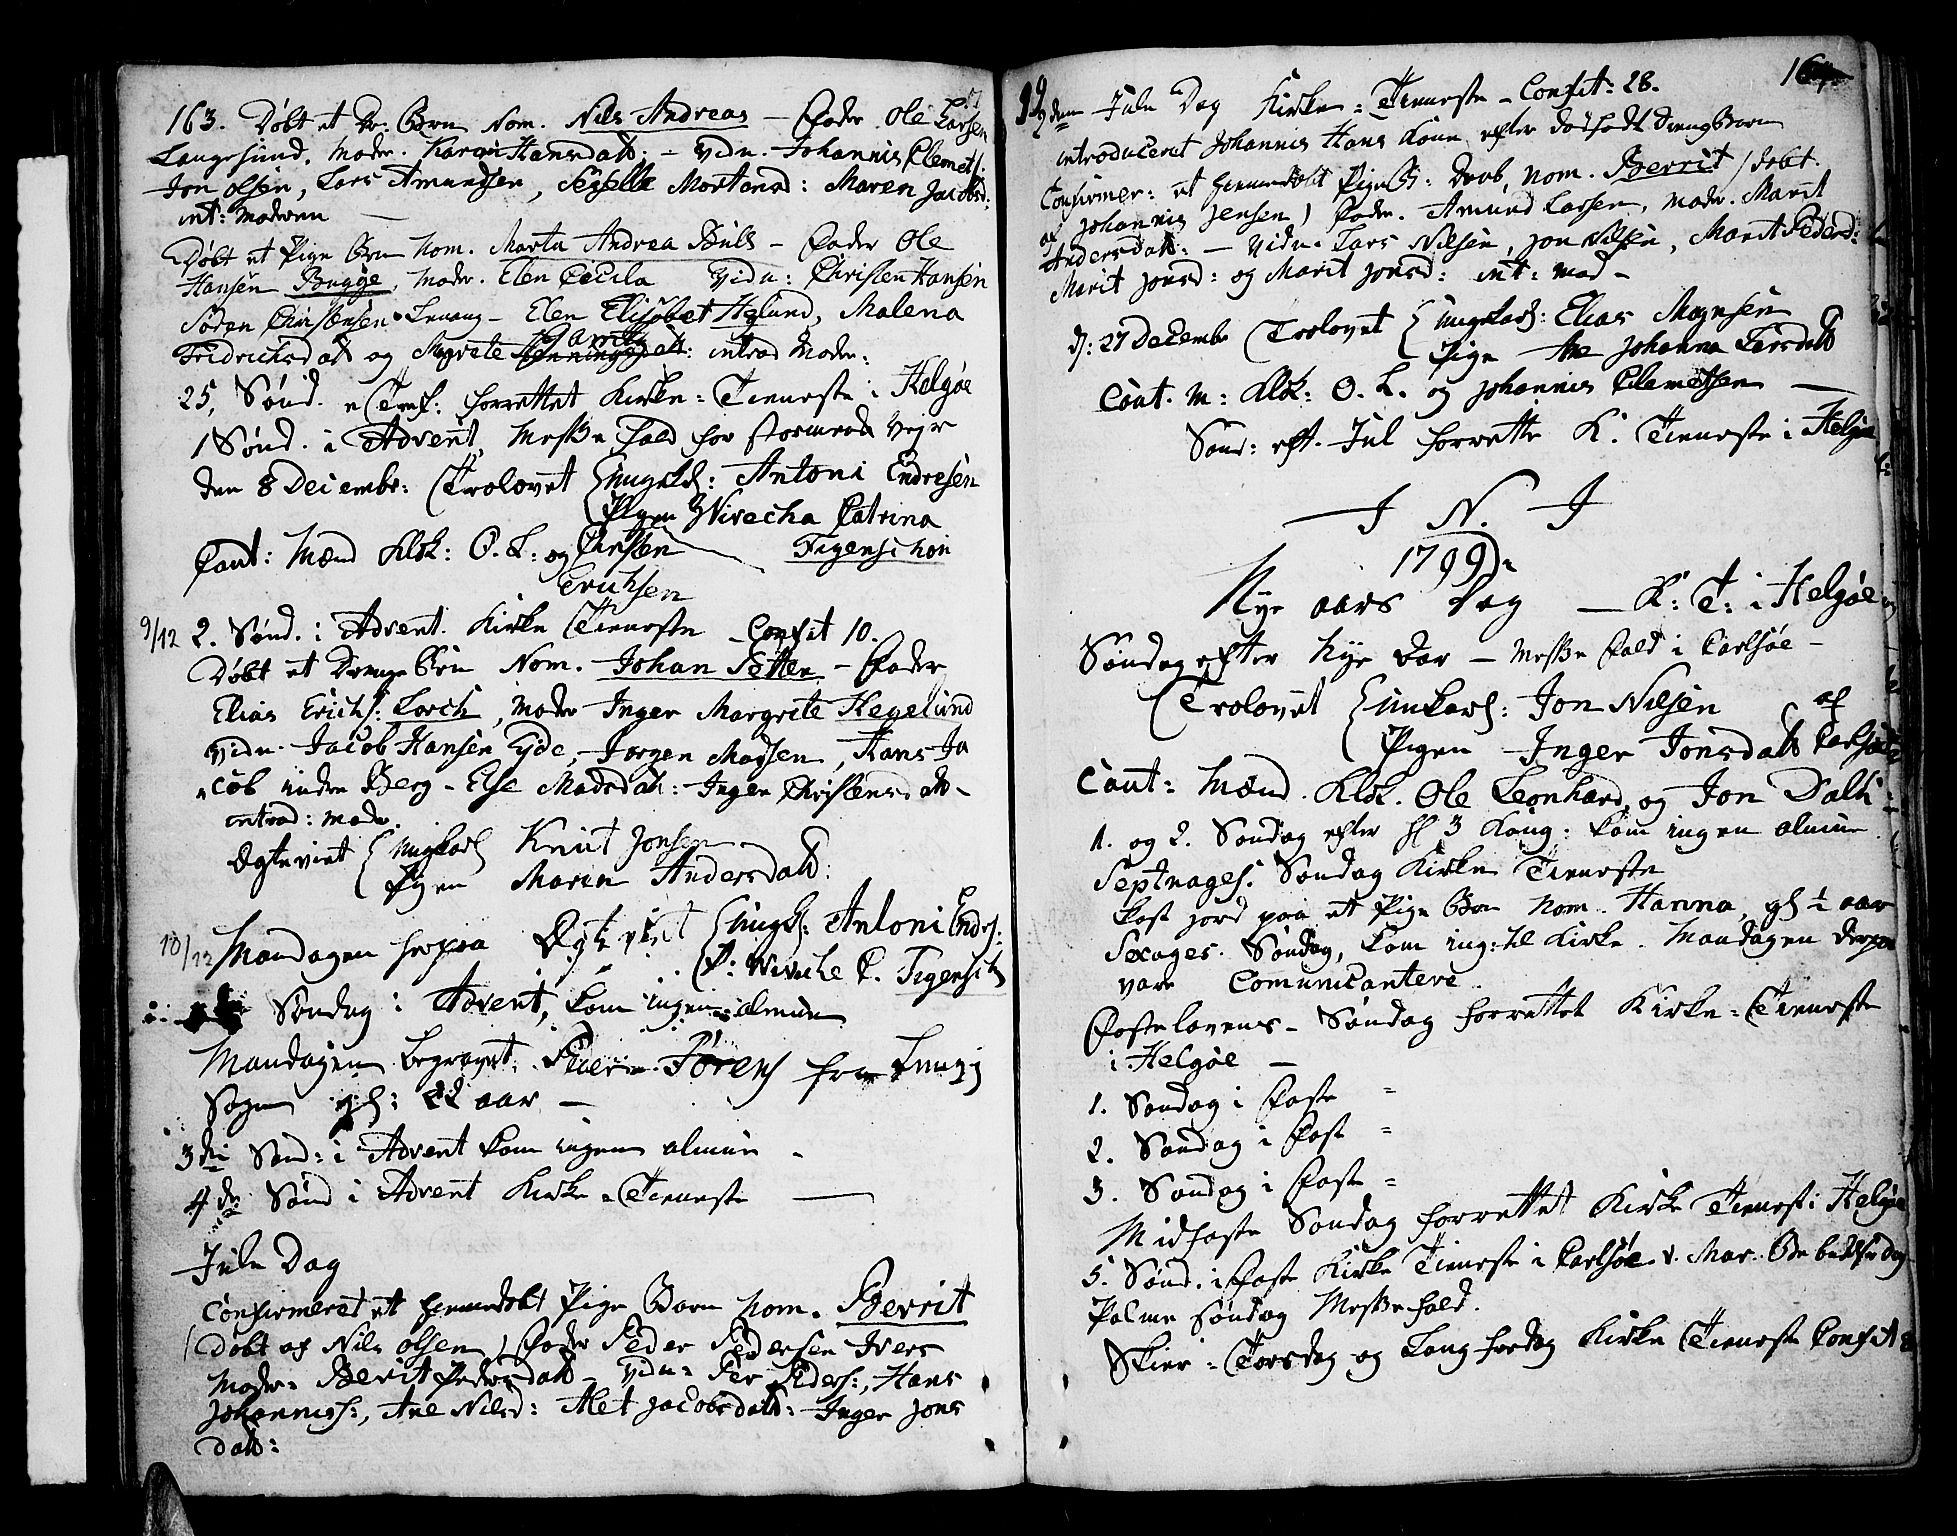 163. Døbt et Dr. Barn Nom. Nils Andreas – Fader Ole Larsen
Langesund, Moder. Karen Hansdatt: – Vidn. Johannis Clemets:
Jon olsen, Lars Amundsen, Sezselle Mortensd: Maren Jacobsd:
int: Moderen
Døbt et Pige Barn Nom. Marta Andrea Bull – Fader Ole
Hansen Bugge, Moder. Elen Cecila Vidn: Christen Hansen
Søren Christensen Lnang – Elen Elisabet Heglund, Malena
Fridrichsdatt og Mgrete Henningsdatt: introd Moder:
25, Sønd. e Trinf. forrettet Kirke = Tieneste i Helgøe
1 Sønd. i Advent, Messe fald for stormend Vejr
den 8 Decembr: Trolovet Ungkl: Antoni Endresen
Pigen Wivecha Catrina
Caut: Mænd Klok: O. L: og Christen Figenschou
Erichsen
9/12 2. Sønd. i Advent. Kirke Tieneste – Confit 10.
Døbt et Drenge Barn Nom. Johan Petter – Fader
Elias Erichs: Lorch, Moder Inger Margrete Hegelund
Vidn. Jacob Hansen Eyde, Jørgen Madsen, Hans Ja
cob under Berg – Else Madsdatt: Inger Christensdatt –
introd: Moder.
Ægteviet Ungkarl Knut Jonsen
Pigen Maren Andersdatt:
10/12 Mandagen herpaa Ægteviet Ungkl: Antoni Endrs:
P: Wiveche C. Figensch
Søndag i Advent, kom ingen almue
Mandagen begravet Peder Sørens fra Lyngs
Sogn gl: 22 aar –
3die Sønd: i Advent kom ingen almue –
4de Sønd i Advent Kirke = Tieneste –
Jule Dag
Confirmeret et hiemedøbt Pige Barn Nom. Berrit
(Døbt af Nils Olsen) Fader Peder Pedersen Ivers
Moder = Berit Pedersdatt – Vidn = Per Peders:, Hans
Johanniss:, Ane Nilsd: Alet Jacobsdatt: Inger Jons
datt:
164
2den Jule Dag Kirke = Tieneste – Confit: 28.
introduceret Johannis Hans Kone efter dødfødt Drengbarn
Confirmer: et hiemmedøbt PigeB: Daab, Nom. Berrit (døbt
af Johannis Jensen) Fader. Amund Larsen, Moder. Marit
Andersdatt: – Vidn. Lars Nilsen, Jon Nilsen, Marit Pedersd:
Marit Jonsd: og Marit Jonsd: int: Mod –
d: 27 Decembr Trolovet Ungkarl: Elias Mognsen
Pige Ane Johanna Larsdatt
Caut. M: Klok: O. L. og Johannis Clemetsen –
Sønd: eft. Jul forrette K. Tieneste i Helgøe
I N. I
1799
Nye aars Dag – K: T: i Helgøe
Søndag efter Nye Aar – Messe fald i Carlsøe –
Trolovet Unkarl: Jon Nilsen af
Pigen Inger Jonsdatt Carlsøe
Caut: Mænd. Klok. Ole Leonhard og Jon Dahl
1. og 2. Søndag efter Hl 3 Kong: kom ingen almue
Septuages. Søndag Kirke Tieneste
kast jord paa et Pige Barn Nom. Hanna gl ½ aar
Sexages. Søndag, kom ing: til Kirke. Mandagen derpaa
vare Comunicantere.
Fastelavens – Søndag forrettet Kirke = Tieneste
i Helgøe –
1. Søndag i Faste =
2. Søndag i Fast =
3. Søndag i Faste =
Midfaste Søndag forrettet Kirke Tienest i Helgøe
5. Sønd. i Faste Kirke Tieneste i Carlsøe. v. Mar. Bebudelse dag
Palme Søndag Messe fald.
Skier = Torsdag og Lang fredag Kirke Tieneste Confit 8